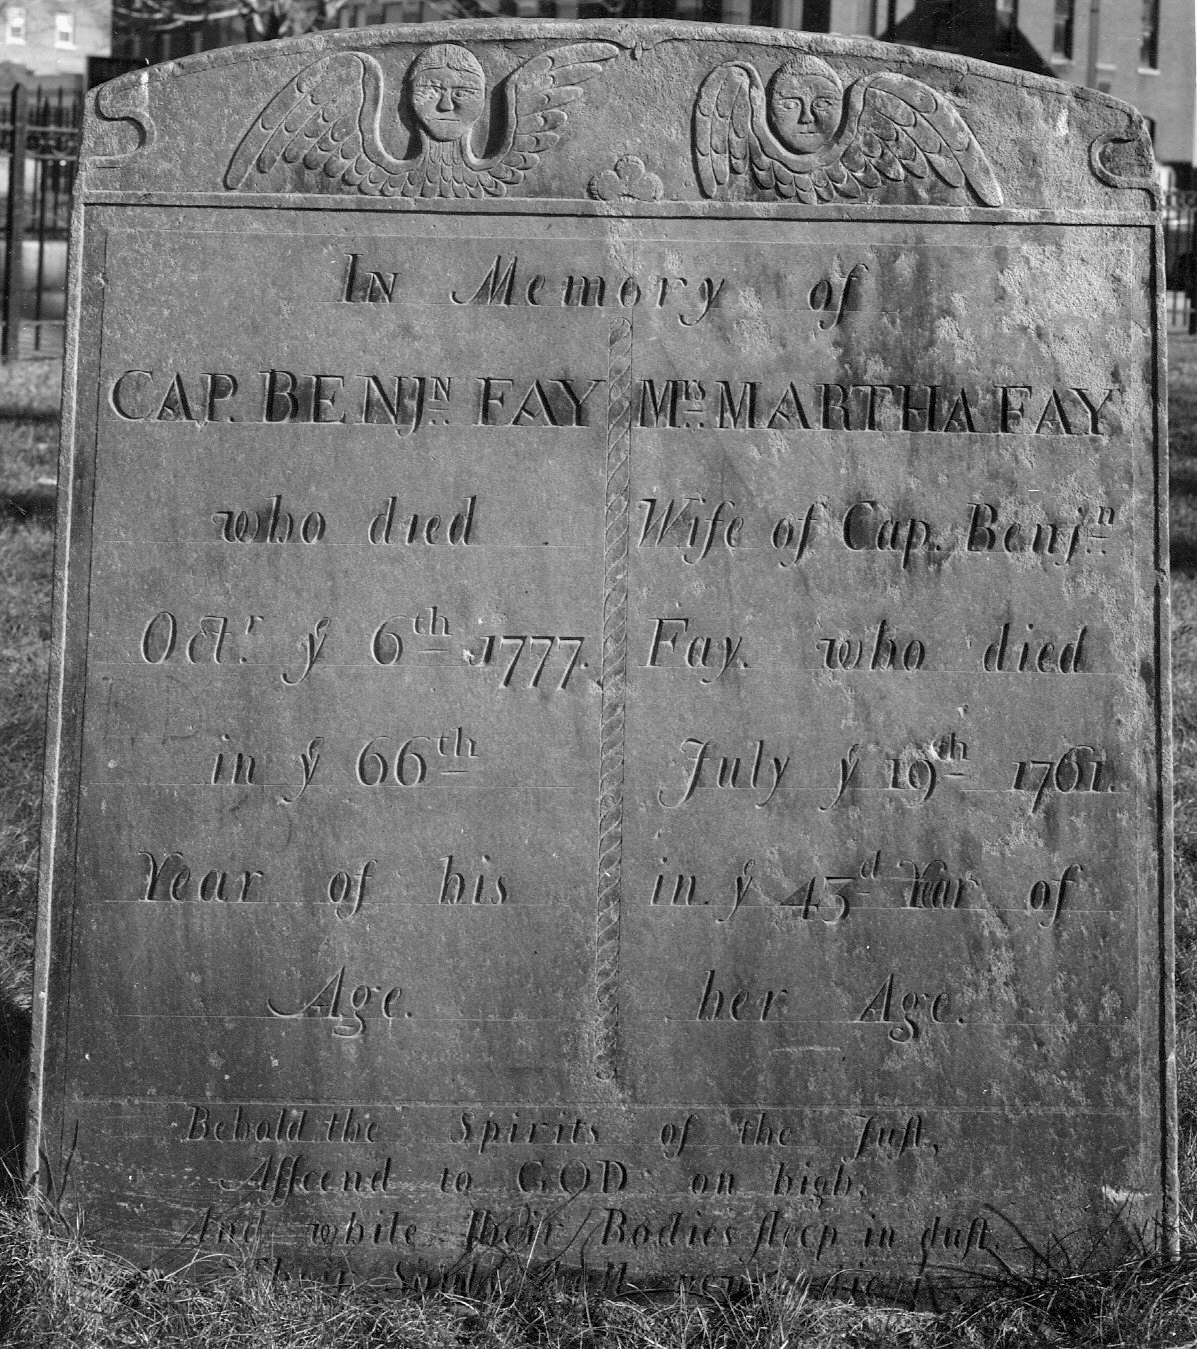 In Memory of
CAP. BENJN. FAY
who died
Octr. ye 6th 1777.
in ye 66th
Year of his
Age.
MRS. MARTHA FAY
Wife of Cap. Benjn.
Fay. who died
July ye 19th 1761.
in. ye 43d Year of
her Age.
Behold the Spirits of the Just,
Asscend to GOD on high,
And while their Bodies sleep in dust.